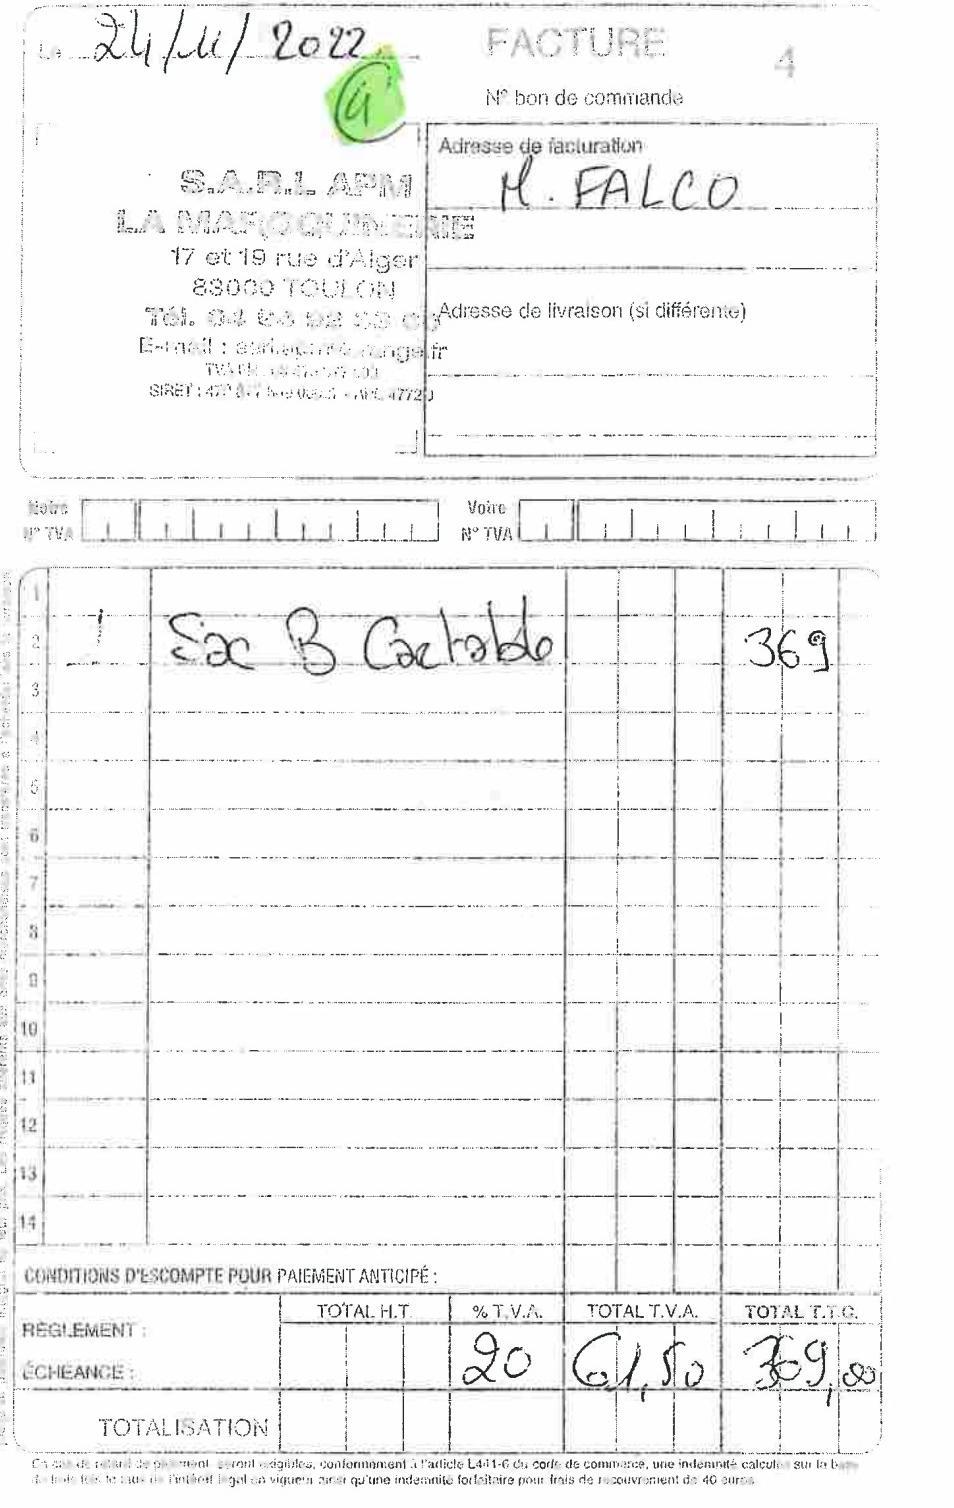 Le 24/11/2022
FACTURE
4
4
N° bon de commande
Adresse de facturation
M. FALCO
S.A.R.L APM
LA MAROQUINERIE
17 et 19 rue d'Alger
83000 TOULON
Tél. 04
Adresse de livraison (si différente)
E-mail :
SIRET :
Notre
N° TVA
Votre
N° TVA
1
2 1 Sac B Cartable 369
3
4
5
6
7
8
9
10
11
12
13
14
CONDITIONS D'ESCOMPTE POUR PAIEMENT ANTICIPÉ :
TOTAL H.T. % T.V.A. TOTAL T.V.A. TOTAL T.T.C.
RÈGLEMENT :
ÉCHÉANCE : 20 61,50 369,00
TOTALISATION
En cas de retard de paiement, seront exigibles, conformément à l'article L441-6 du code de commerce, une indemnité calculée sur la base
de trois fois le taux de l'intérêt légal en vigueur ainsi qu'une indemnité forfaitaire pour frais de recouvrement de 40 euros